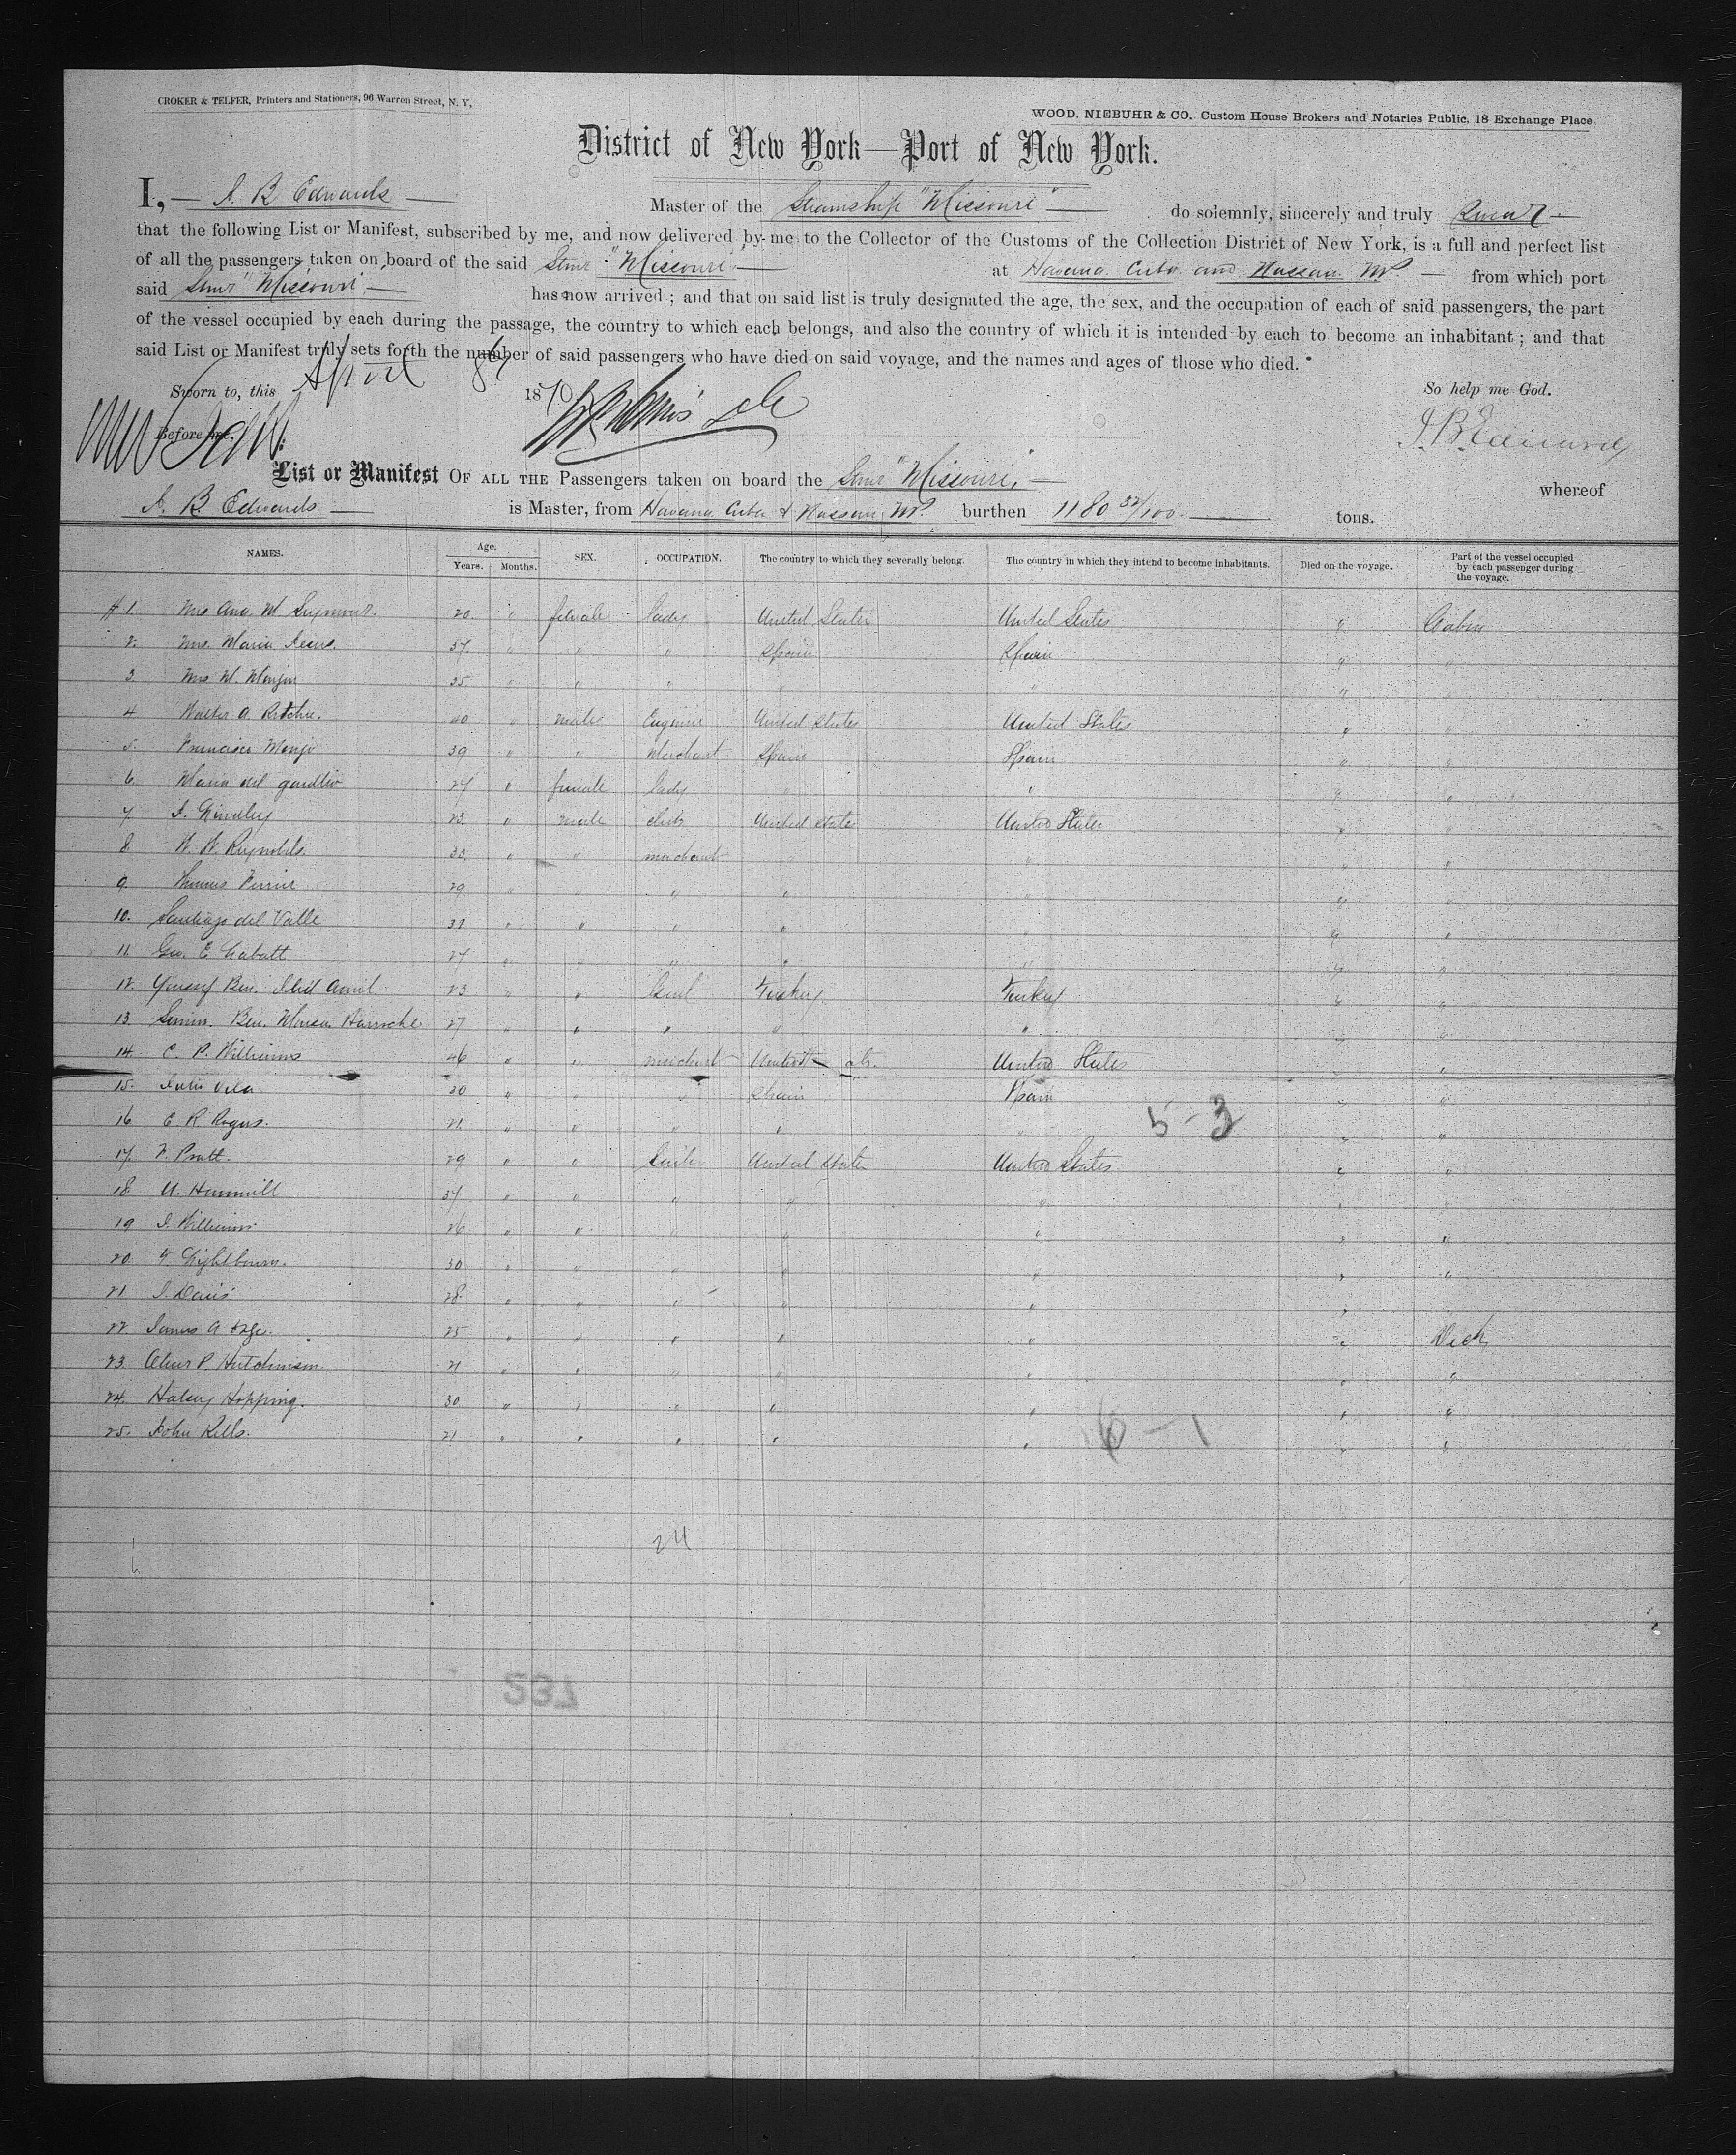 CROKER & TELFER, Printers and Stationers, 96 Warren Street, N. Y,
WOOD, NIEBUHR & CO. Custom House Brokers and Notaries Public, 18 Exchange Place.
District of New York—Port of New York.
I, — B Edwards — Master of the Steamship "Missouri" — do solemnly, sincerely and truly Swear —
that the following List or Manifest, subscribed by me, and now delivered by me to the Collector of the Customs of the Collection District of New York, is a full and perfect list
of all the passengers taken on board of the said Stmr "Missouri" — at Havana Cuba and Nassau NP — from which port
said Stmr "Missouri" — has now arrived ; and that on said list is truly designated the age, the sex, and the occupation of each of said passengers, the part
of the vessel occupied by each during the passage, the country to which each belongs, and also the country of which it is intended by each to become an inhabitant ; and that
said List or Manifest truly sets forth the number of said passengers who have died on said voyage, and the names and ages of those who died.
Sworn to, this April 8 1870 So help me God.
Before me, B Edwards
List or Manifest OF ALL THE Passengers taken on board the Stmr "Missouri" — whereof
B. Edwards — is Master, from Havana Cuba & Nassau NP burthen 1180 /100 — tons.
NAMES. Age. Years. Months. SEX. OCCUPATION. The country to which they severally belong. The country in which they intend to become inhabitants. Died on the voyage. Part of the vessel occupied by each passenger during the voyage.
# 1. Mrs Ana M Seymour. 20. " female lady United States United States " Cabin
2. Mrs. Maria 37. " " " Spain Spain " "
3. Mrs M. Monjo 25 " " " " " " "
4 Walter A Ritchie. 40 " male United States United States " "
5. Francisco Monjo 39 " " Merchant Spain Spain " "
6. Maria del 27 " female lady " " " "
7. 23. " male United States United States " "
8. W. W. Reynolds. 35. " " merchant " " " "
9. Thomas 29 " " " " " " "
10. Santiago del Valle 31 " " " " " " "
11. Geo. E Cabott 27 " " " " " " "
12. Ben. 23 " " Turkey Turkey " "
13. Ben. 27 " " " " " " "
14. C. P. Williams 46 " " merchant United States " "
15. Julio Vila 30 " " " Spain Spain " "
5-3
16 C. R Rogers. 21. " " " " " " "
17. Pratt. 29 " " United States United States " "
18. Hammill 37 " " " " " " "
19 Williams 26 " " " " " " "
20. Lightbourn. 30 " " " " " " "
21 Davis 28. " " " " " " "
22. James A 25 " " " " " " Deck
23. P. Hutchinson 21 " " " " " " "
24. Halsey Hopping. 30 " " " " " " "
25. John Kells. 21 " " " " " " "
6-1
24